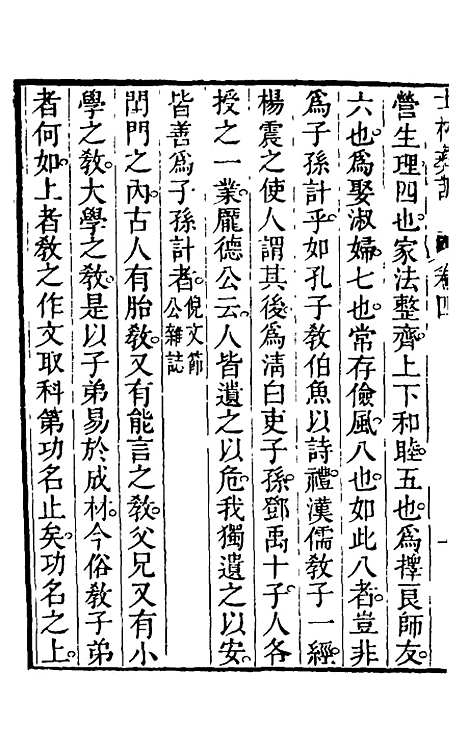 士林彝訓 卷四
營生理四也家法整齊上下和睦五也爲擇良師友
六也爲娶淑婦七也常存儉風八也如此八者豈非
爲子孫計乎如孔子教伯魚以詩禮漢儒教子一經
楊震之使人謂其後爲淸白吏子孫鄧禹十子人各
授之一業龐德公云人皆遺之以危我獨遺之以安
皆善爲子孫計者倪文節公雜誌
閨門之內古人有胎教又有能言之教父兄又有小
學之教大學之教是以子弟易於成材今俗教子弟
者何如上者教之作文取科第功名止矣功名之上